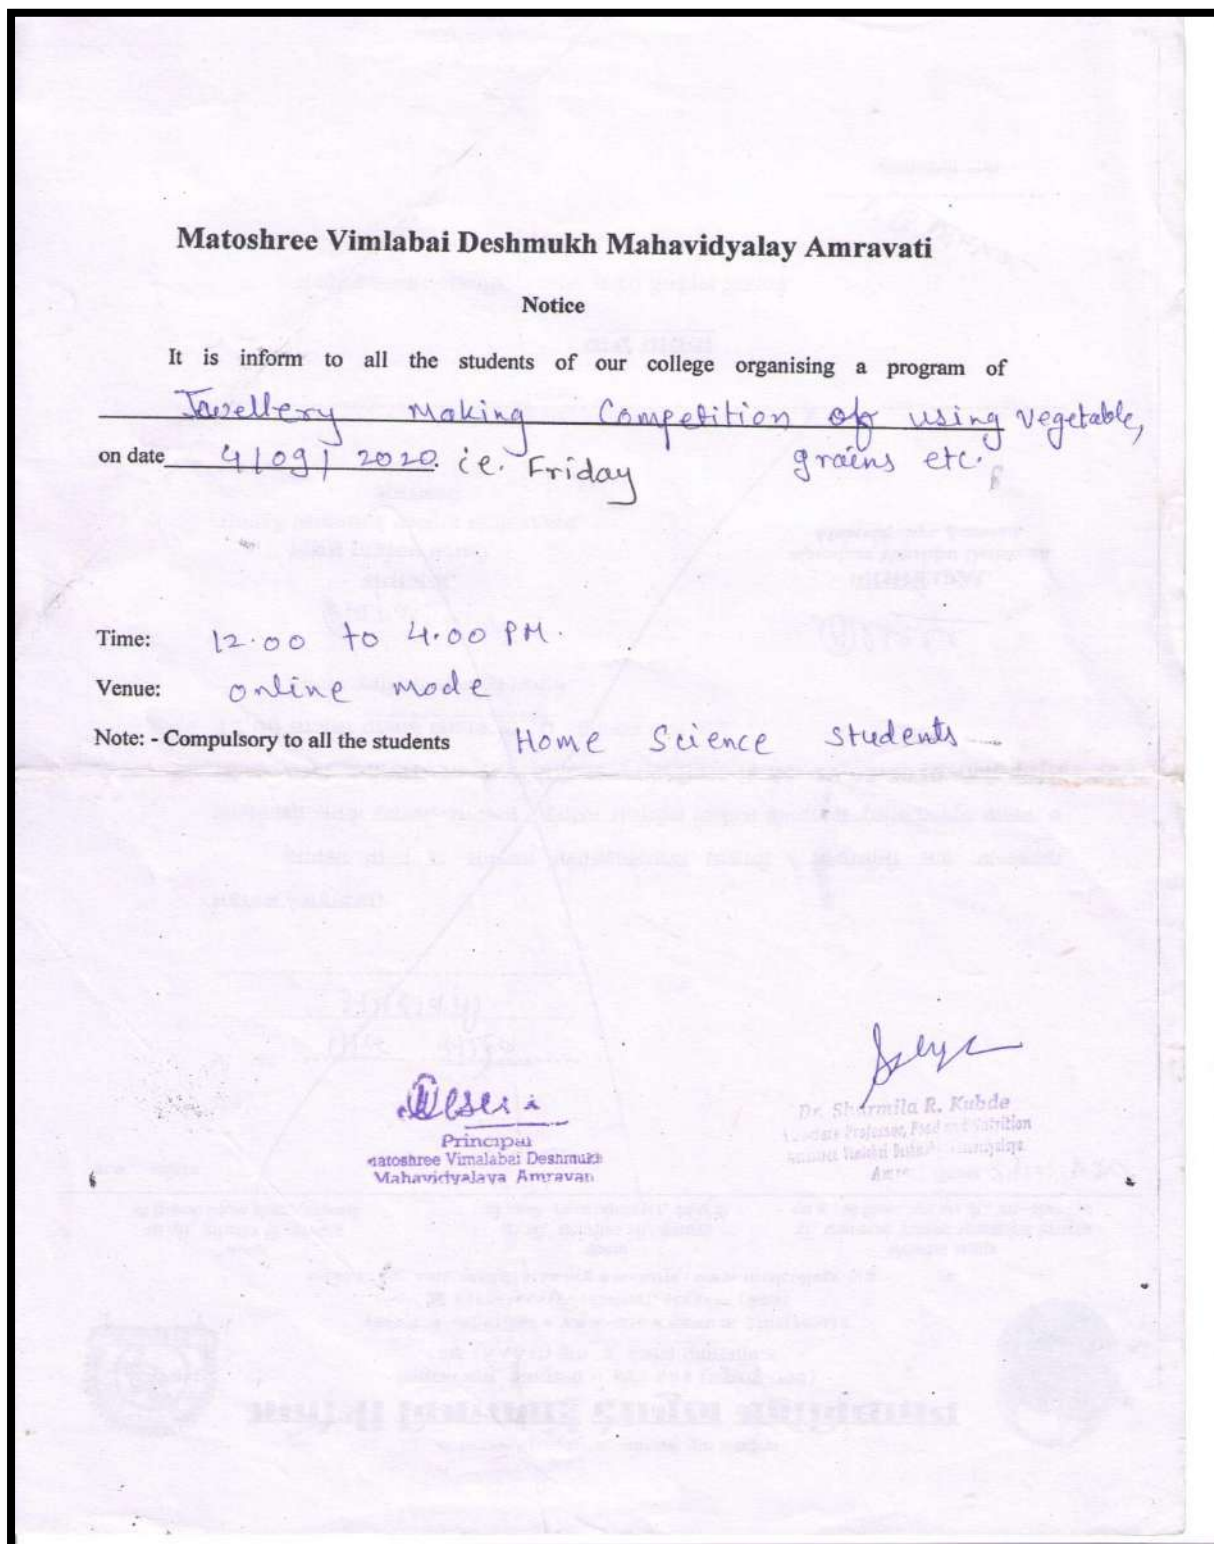 Matoshree Vimlabai Deshmukh Mahavidyalay Amravati
Notice
It is inform to all the students of our college organising a program of
Jewellery Making Competition of using vegetable,
grains etc.
on date 4/09/2020. i.e. Friday
Time: 12.00 to 4.00 PM.
Venue: online mode
Note: - Compulsory to all the students Home Science students
Principal
Matoshree Vimalabai Deshmukh
Mahavidyalaya Amravati
Dr. Sharmila R. Kubde
Professor, Food and Nutrition